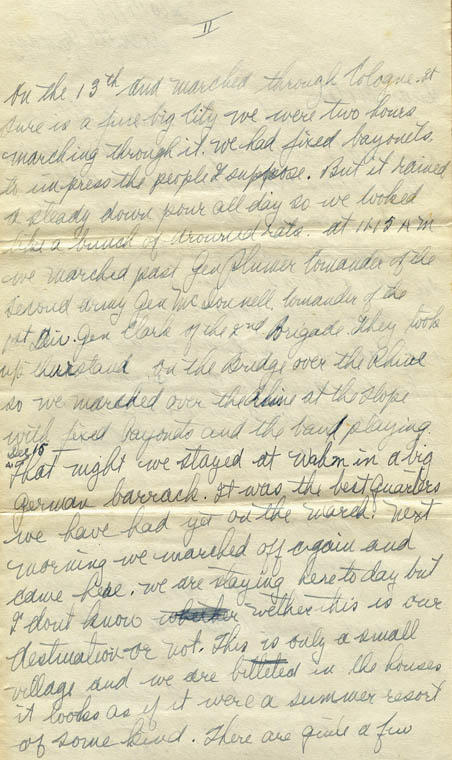 II
On the 13th and marched through Cologne. It
sure is a fine big city we were two hours
marching through it. we had fixed bayonets.
to impress the people I suppose. But it rained
a steady down pour all day so we looked
like a bunch of drowned rats. at 11.15 A m
we marched past Gen Plumer Comander of the
Second army Gen McDonnell, Comander of the
1st Div. Gen Clark of the 2nd Brigade. They took
up their stand on the Bridge over the Rhine
so we marched over the Rhine at the slope
with fixed bayonets and the band playing
Dec 15
That night we stayed at Wahn in a big
German barrack. It was the best quarters
we have had yet on the march. Next
morning we marched off again and
came here. we are staying here to day but
I dont know whether wether this is our
destination or not. This is only a small
village and we are billeted in the houses
it looks as if it were a summer resort
of some kind. There are quite a few